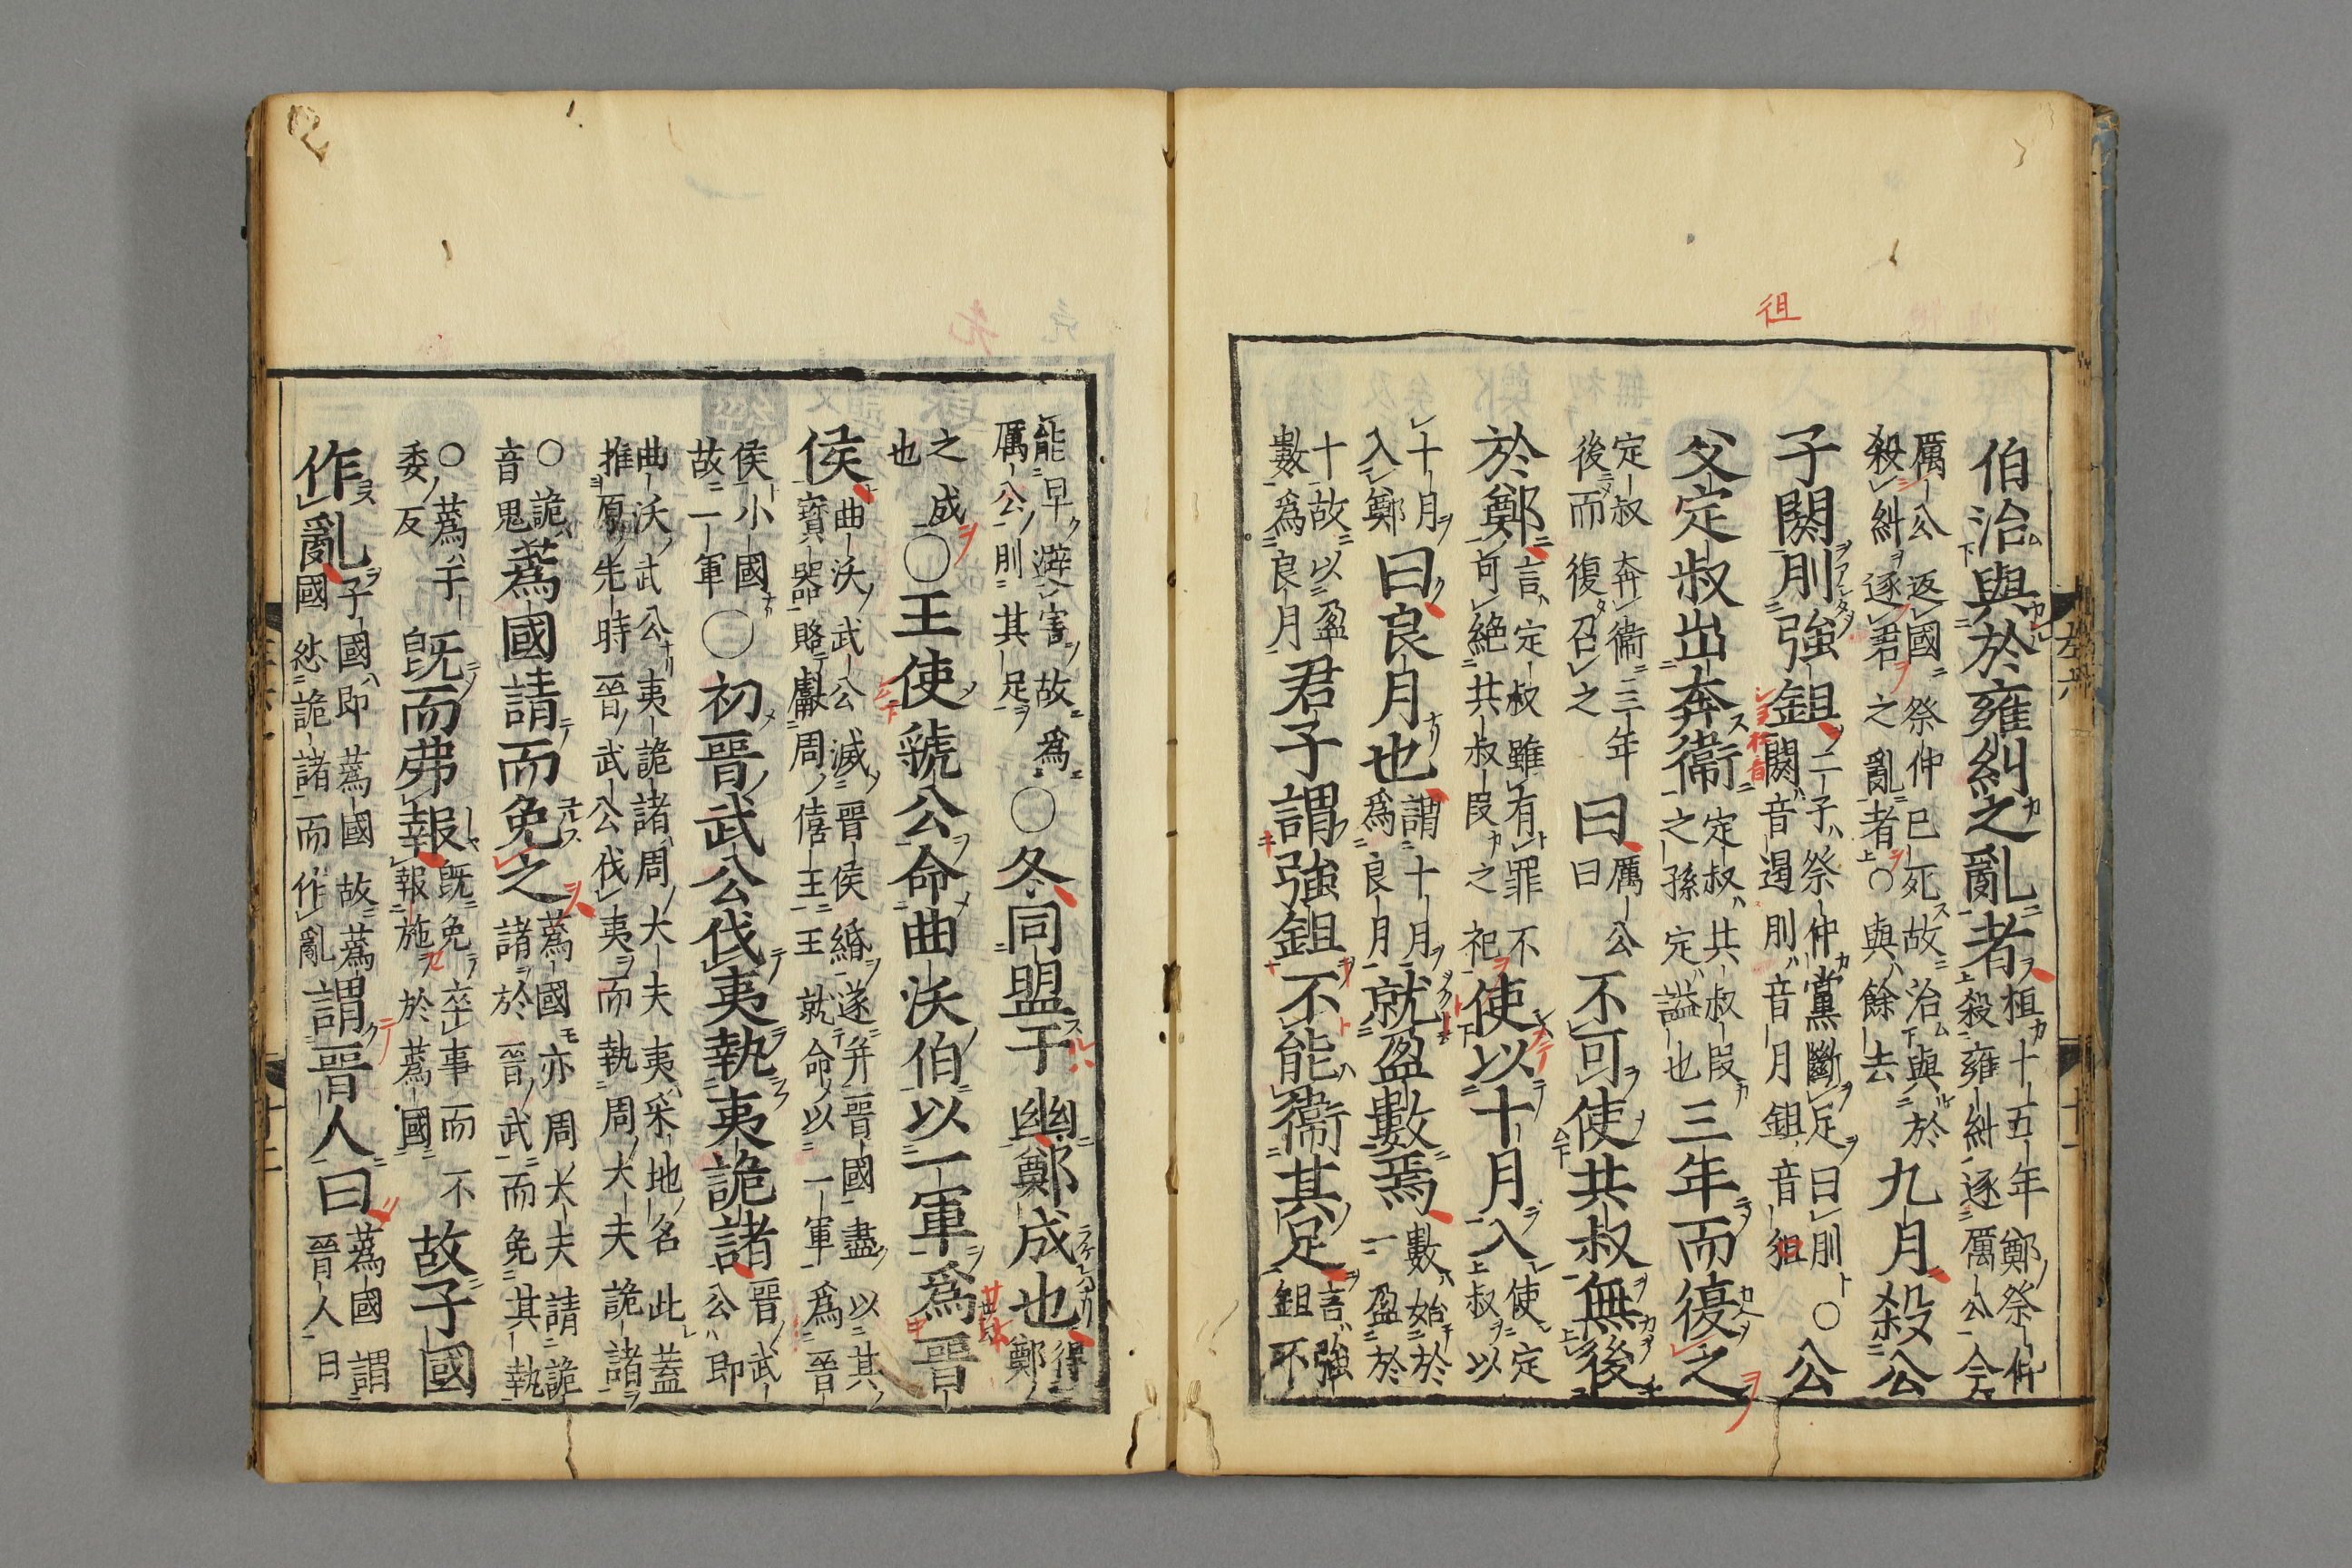 徂
伯治與於雍糾之亂者桓十五年鄭祭仲殺雍糾逐厲公今
厲公返國祭仲已死故治與於殺糾逐君之亂者〇與餘去九月殺公
子閼刖強鉏二子祭仲黨斷足曰刖〇閼音遏刖音月鉏音徂公
父定叔出奔衛定叔共叔段之孫定謚也三年而復之
定叔奔衛三年後而復召之曰厲公曰不可使共叔無後
於鄭言定叔雖有罪不可絶共叔段之祀使以十月入使定叔以
十月入鄭曰良月也謂十月爲良月就盈數焉數始於一盈於
十故以盈數爲良月君子謂強鉏不能衛其足言強鉏不
能早避害故爲厲公刖其足〇冬同盟于幽鄭成也得鄭
之成也〇王使虢公命曲沃伯以一軍爲晉
侯曲沃武公滅晉侯緡遂并晉國盡以其寶器賂獻周僖王王就命以一軍爲晉
侯小國故一軍〇初晉武公伐夷執夷詭諸晉武公即
曲沃武公夷詭諸周大夫夷采地名此蓋推原先時晉武公伐夷而執周大夫詭諸
〇詭音思蒍國請而免之蒍國亦周大夫請詭諸於晉武而免其執
〇蒍于委反既而弗報既免卒事而不報施於蒍國故子國
作亂子國即蒍國故蒍國忿詭諸而作亂謂晉人曰蒍國謂晉人曰